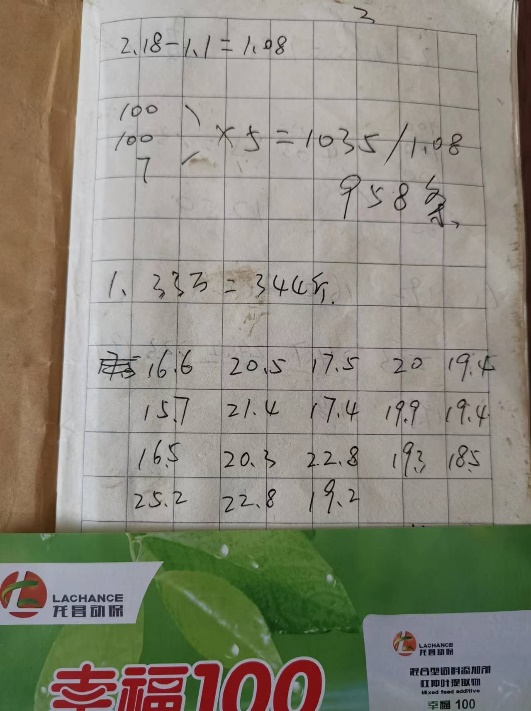 2
2.18-1.1=1.08
100
100 × 5 = 1035/1.08
7
958条、
1、333 = 344斤.
16.6 20.5 17.5 20 19.4
15.7 21.4 17.4 19.9 19.4
16.5 20.3 22.8 19.3 18.5
25.2 22.8 19.2
LACHANCE
龙昌动保
幸福100
LACHANCE
龙昌动保
混合型饲料添加剂
杜仲叶提取物
Mixed feed additive
幸福 100